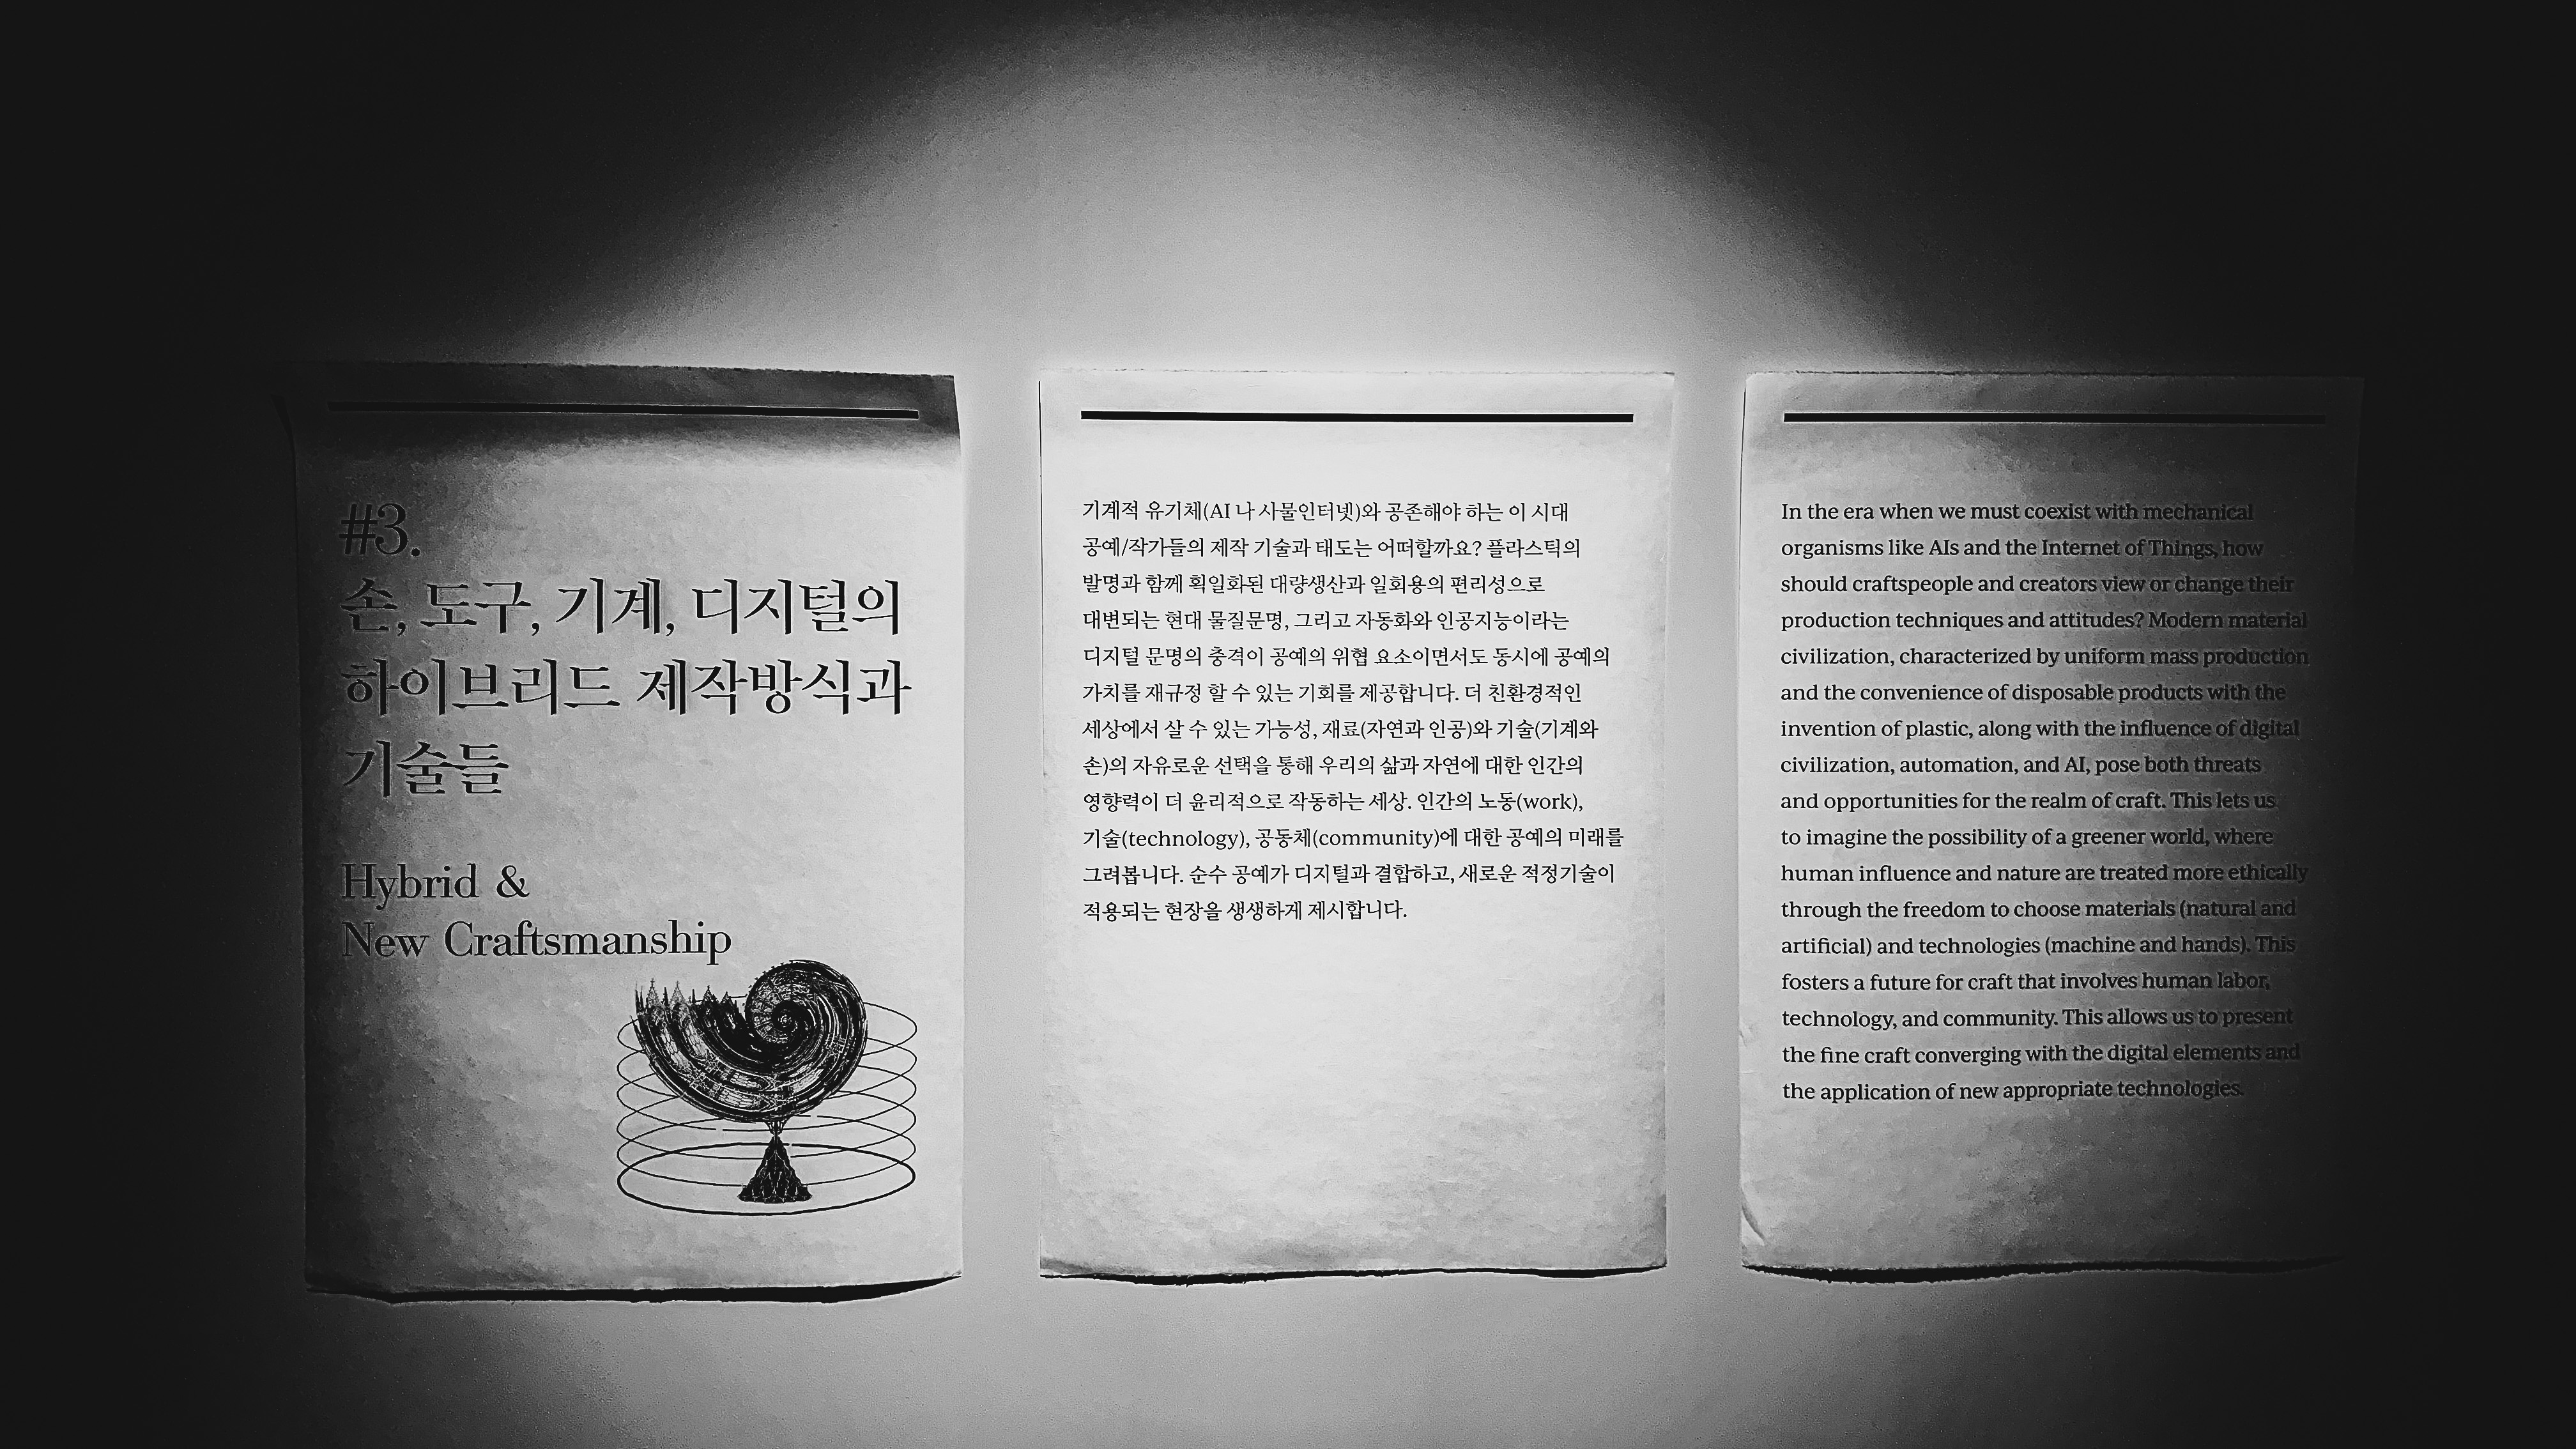 #3.
손, 도구, 기계, 디지털의
하이브리드 제작방식과
기술들
Hybrid &
New Craftsmanship
기계적 유기체(AI 나 사물인터넷)와 공존해야 하는 이 시대
공예/작가들의 제작 기술과 태도는 어떠할까요? 플라스틱의
발명과 함께 획일화된 대량생산과 일회용의 편리성으로
대변되는 현대 물질문명, 그리고 자동화와 인공지능이라는
디지털 문명의 충격이 공예의 위협 요소이면서도 동시에 공예의
가치를 재규정 할 수 있는 기회를 제공합니다. 더 친환경적인
세상에서 살 수 있는 가능성, 재료(자연과 인공)와 기술(기계와
손)의 자유로운 선택을 통해 우리의 삶과 자연에 대한 인간의
영향력이 더 윤리적으로 작동하는 세상. 인간의 노동(work),
기술(technology), 공동체(community)에 대한 공예의 미래를
그려봅니다. 순수 공예가 디지털과 결합하고, 새로운 적정기술이
적용되는 현장을 생생하게 제시합니다.
In the era when we must coexist with mechanical
organisms like AIs and the Internet of Things, how
should craftspeople and creators view or change their
production techniques and attitudes? Modern material
civilization, characterized by uniform mass production
and the convenience of disposable products with the
invention of plastic, along with the influence of digital
civilization, automation, and AI, pose both threats
and opportunities for the realm of craft. This lets us
to imagine the possibility of a greener world, where
human influence and nature are treated more ethically
through the freedom to choose materials (natural and
artificial) and technologies (machine and hands). This
fosters a future for craft that involves human labor,
technology, and community. This allows us to present
the fine craft converging with the digital elements and
the application of new appropriate technologies.